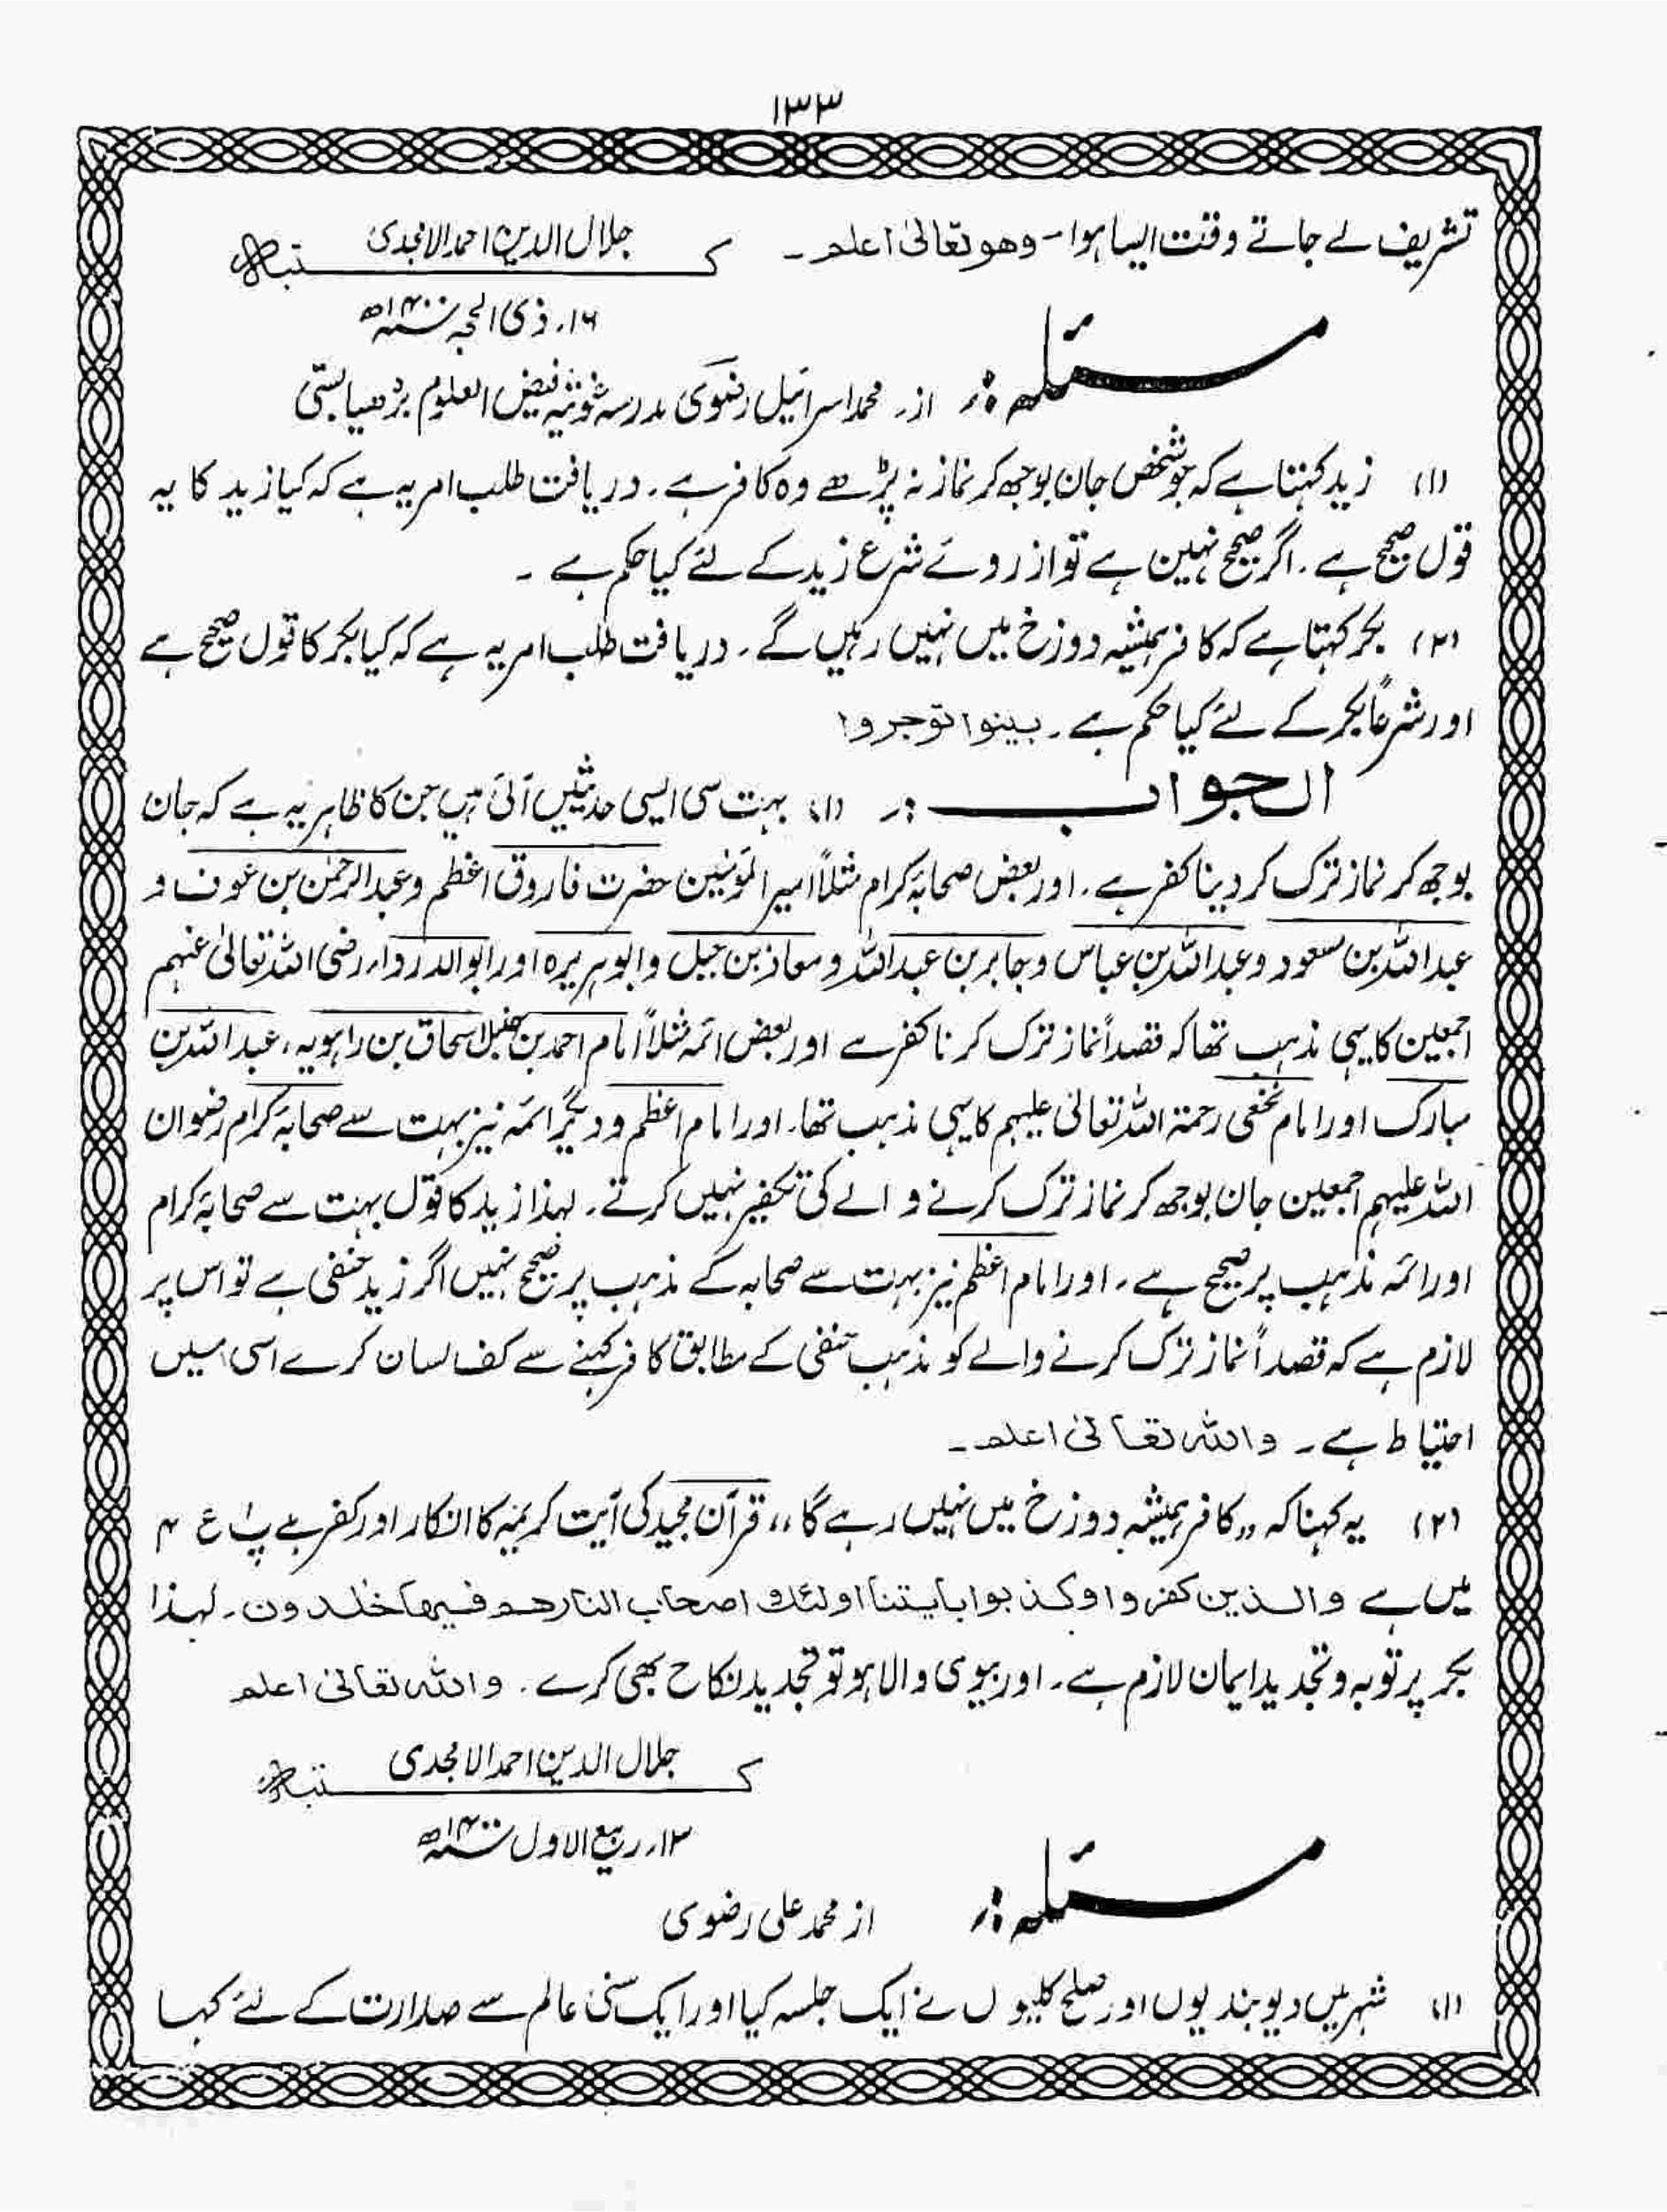 ۱۳۳
تشریف لے جاتے وقت ایسا ہوا۔ وھو تعالیٰ اعلم۔ کتبہ جلال الدین احمد الامجدی
۱۶؍ ذی الحجہ سنہ ۱۴۰۰ھ
مسئلہ:۔ از۔ محمد اسرائیل رضوی مدرسہ غوثیہ فیض العلوم بڑھیا بستی
(۱) زید کہتا ہے کہ جو شخص جان بوجھ کر نماز نہ پڑھے وہ کافر ہے۔ دریافت طلب امر یہ ہے کہ کیا زید کا یہ
قول صحیح ہے۔ اگر صحیح نہیں ہے تو از روئے شرع زید کے لئے کیا حکم ہے۔
(۲) بکر کہتا ہے کہ کافر ہمیشہ دوزخ میں نہیں رہیں گے۔ دریافت طلب امر یہ ہے کہ کیا بکر کا قول صحیح ہے
اور شرعاً بکر کے لئے کیا حکم ہے۔ بینوا توجروا
الجواب:۔ (۱) بہت سی ایسی حدیثیں آئی ہیں جن کا ظاہر یہ ہے کہ جان
بوجھ کر نماز ترک کر دینا کفر ہے۔ اور بعض صحابۂ کرام مثلاً امیر المومنین حضرت فاروق اعظم و عبد الرحمٰن بن عوف و
عبد اللہ بن مسعود و عبد اللہ بن عباس و جابر بن عبد اللہ و معاذ بن جبل و ابو ہریرہ اور ابو الدرداء رضی اللہ تعالیٰ عنہم
اجمعین کا یہی مذہب تھا کہ قصداً نماز ترک کرنا کفر ہے اور بعض ائمہ مثلاً امام احمد بن حنبل اسحاق بن راہویہ، عبد اللہ بن
مبارک اور امام نخعی رحمۃ اللہ تعالیٰ علیہم کا یہی مذہب تھا۔ اور امام اعظم و دیگر ائمہ نیز بہت سے صحابۂ کرام رضوان
اللہ علیہم اجمعین جان بوجھ کر نماز ترک کرنے والے کی تکفیر نہیں کرتے۔ لہذا زید کا قول بہت سے صحابۂ کرام
اور ائمہ مذہب پر صحیح ہے۔ اور امام اعظم نیز بہت سے صحابہ کے مذہب پر صحیح نہیں اگر زید حنفی ہے تو اس پر
لازم ہے کہ قصداً نماز ترک کرنے والے کو مذہب حنفی کے مطابق کافر کہنے سے کف لسان کرے اسی میں
احتیاط ہے۔ واللہ تعالیٰ اعلم۔
(۲) یہ کہنا کہ ,,کافر ہمیشہ دوزخ میں نہیں رہے گا،، قرآن مجید کی آیت کریمہ کا انکار اور کفر ہے پ۱ ع ۴
میں ہے والذین کفروا وکذبوا بایتنا اولئک اصحاب النار ھم فیھا خٰلدون۔ لہذا
بکر پر توبہ و تجدید ایمان لازم ہے۔ اور بیوی والا ہو تو تجدید نکاح بھی کرے۔ واللہ تعالیٰ اعلم
کتبہ جلال الدین احمد الامجدی
۱۲؍ ربیع الاول سنہ ۱۴۰۰ھ
مسئلہ:۔ از محمد علی رضوی
(۱) شہر میں دیوبندیوں اور صلح کلیوں نے ایک جلسہ کیا اور ایک سنی عالم سے صدارت کے لئے کہا